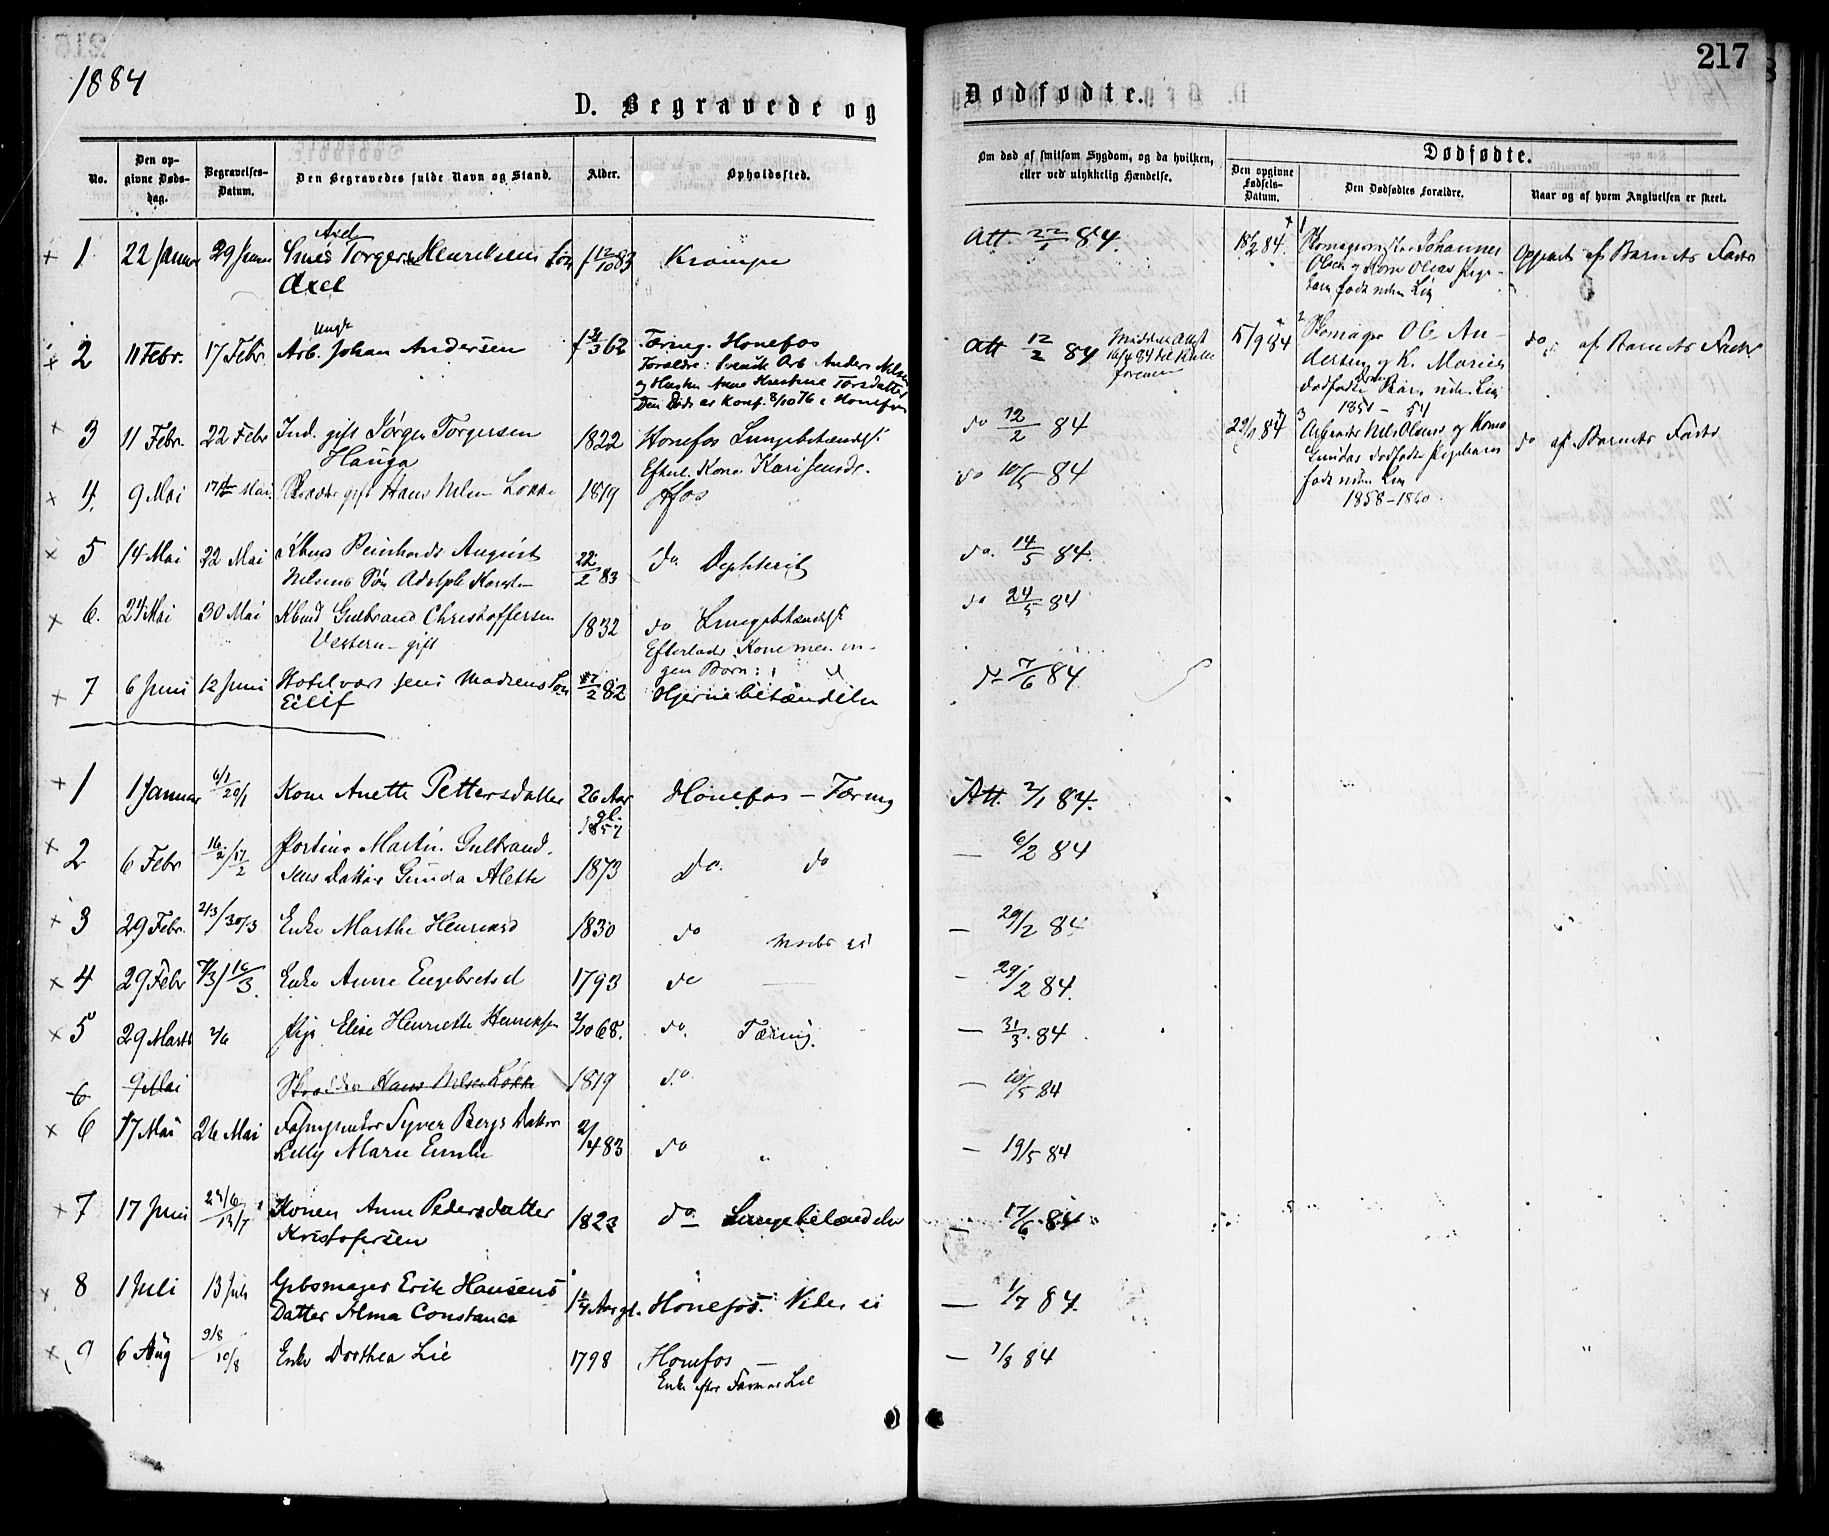 217
1884
D. Begravede og
Dødfødte.
No.
Den opgivne Døds-dag.
Begravelses-Datum.
Den Begravedes fulde Navn og Stand.
Alder.
Opholdssted.
Om død af smitsom Sygdom, og da hvilken, eller ved ulykkelig Hændelse.
Dødfødte.
Den opgivne Fødsels-Datum.
Den Dødfødtes Forældre.
Naar og af hvem Angivelsen er skeet.
1 22 Januar 29 Januar Axel Smed Torger Henriksens Søn f 12/10 83 Krampe Att. 22/1 84.
Axel
2 11 Febr. 17 Febr. Ungk Arb. Johan Andersen 62 Tæring. Hønefos Att 12/2 84
Forældre: Svensk Arb Anders
og Hustru Anne Kirstine Torsdatter
Den Døde er Konf. 8/10 76 i Hønefos
3 11 Febr. 22 Febr Ind. gift Jørgen Torgersen 1822 Hønefos Lungebetændelse do 12/2 84
Hauga Efterl. Kone Kari Jensdr.
4. 9 Mai 17 Mai Skrædder gift Hans Nilsen Løkke 1819 Hfos do 10/5 84
5 14 Mai 22 Mai Reinhardt August 22/2 83 do Dyphterit do. 14/5 84.
Nilsens Søn Adolph
6. 24 Mai 30 Mai Gulbrand Christoffersen 1832 do Lungebetændelse do 24/5 84
Vestern - gift Efterlader Kone men in-
gen Børn
7 6 Juni 12 Juni Hotelvært Jens Madsens Søn 27/2 82 Hjernebetændelse do 7/6 84
Eilif
18/2 84. 1 Skomagermester Johannes
Olsen og Kone Olias Pige-
barn født uden Liv
Opgivet af Barnets Fader
15/9 84 2 Skomager Ole An-
dersen og K. Maries
dødfødte Barn uden Liv
1851 - 54
do af Barnets Fader
22/9 84 3 Arbeider Nils Olsens og Kone
Gundas dødfødte Pigebarn
født uden Liv
1858-1860.
do af Barnets Fader
1 1 Januar 6/1 20/1 Kone Anette Pettersdatter 26 Aar gl. Hønefos - Tæring Att. 2/1 84.
1857
2 6 Febr 16/2 / 17/2 Martin Gulbrand- 1873 Do. do — 6/2 84
sens Datter Gunda Alette
3 29 Febr. 2/3 / 30/3 Enke Marthe Henriksd 1830 do — 29/2 84
4 29 Febr 7/3 / 16/3. Enke Anne Engebretsd 1793 do — 29/2 84.
5 29 Marts 2/6 Pige Elise Henriette Henriksen 2/10 68. do. Tæring. — 31/3. 84
6 9 Mai Skrædder Hans Nilsen Løkke 1819 do — 10/5 84
6 17 Mai 26 Mai Syver Bergs Datter 2/4 83 do — 19/5 84
Lelly Marie Emilie
7 17 Juni 24/6 13/7 Konen Anne Pedersdatter 1823 do Lungebetændelse — 17/6 84
Kristofersen
8 1 Juli 13 Juli Gibsmager Erik Hansens 1 1/4 Aar gl. Hønefos. Vides ei — 1/7 84.
Datter Alma Constance
9 6 Aug 9/8 10/8 Enke Dorthea Lie 1798 Hønefos — 7/8 84
Enke efter Farver Lie